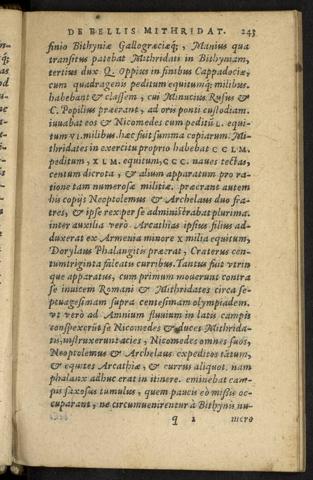 DE BELLIS MITHRIDAT. 243
finio Bithyniæ Gallogræciæq;, Manius qua
transitus patebat Mithridati in Bithyniam,
tertius dux Q. Oppius in finibus Cappadociæ,
cum quadragenis peditum equitumq; milibus.
habebant & classem, cui Minutius Rufus &
C. Popilius præerant, ad oris ponti custodiam.
iuuabat eos & Nicomedes cum peditũ L. equi-
tum VI. milibus. hæc fuit summa copiarum. Mi-
thridates in exercitu proprio habebat CCLM.
peditum, XLM. equitum, CCC. naues tectas,
centum dicrota, & alium apparatum pro ra-
tione tam numerosæ militiæ. præerant autem
his copijs Neoptolemus & Archelaus duo fra-
tres, & ipse rex per se administrabat plurima.
inter auxilia verò. Arcathias ipsius filius ad-
duxerat ex Armenia minore X milia equitum,
Dorylaus Phalangitis præerat, Craterus cen-
tumtriginta falcatis curribus. Tantus fuit vtrin
que apparatus, cum primum mouerunt contra
se inuicem Romani & Mithridates circa se-
ptuagesimam supra centesimam olympiadem.
vt verò ad Amnium fluuium in latis campis
conspexerũt se Nicomedes & duces Mithrida-
tis, instruxerunt acies, Nicomedes omnes suos,
Neoptolemus & Archelaus expeditos tãtum,
& equites Arcathiæ, & currus aliquot. nam
phalanx adhuc erat in itinere. eminebat cam-
pis saxosus tumulus, quem paucis eò missis oc-
cuparant, ne circumuenirentur à Bithynis nu-
q 2 mero